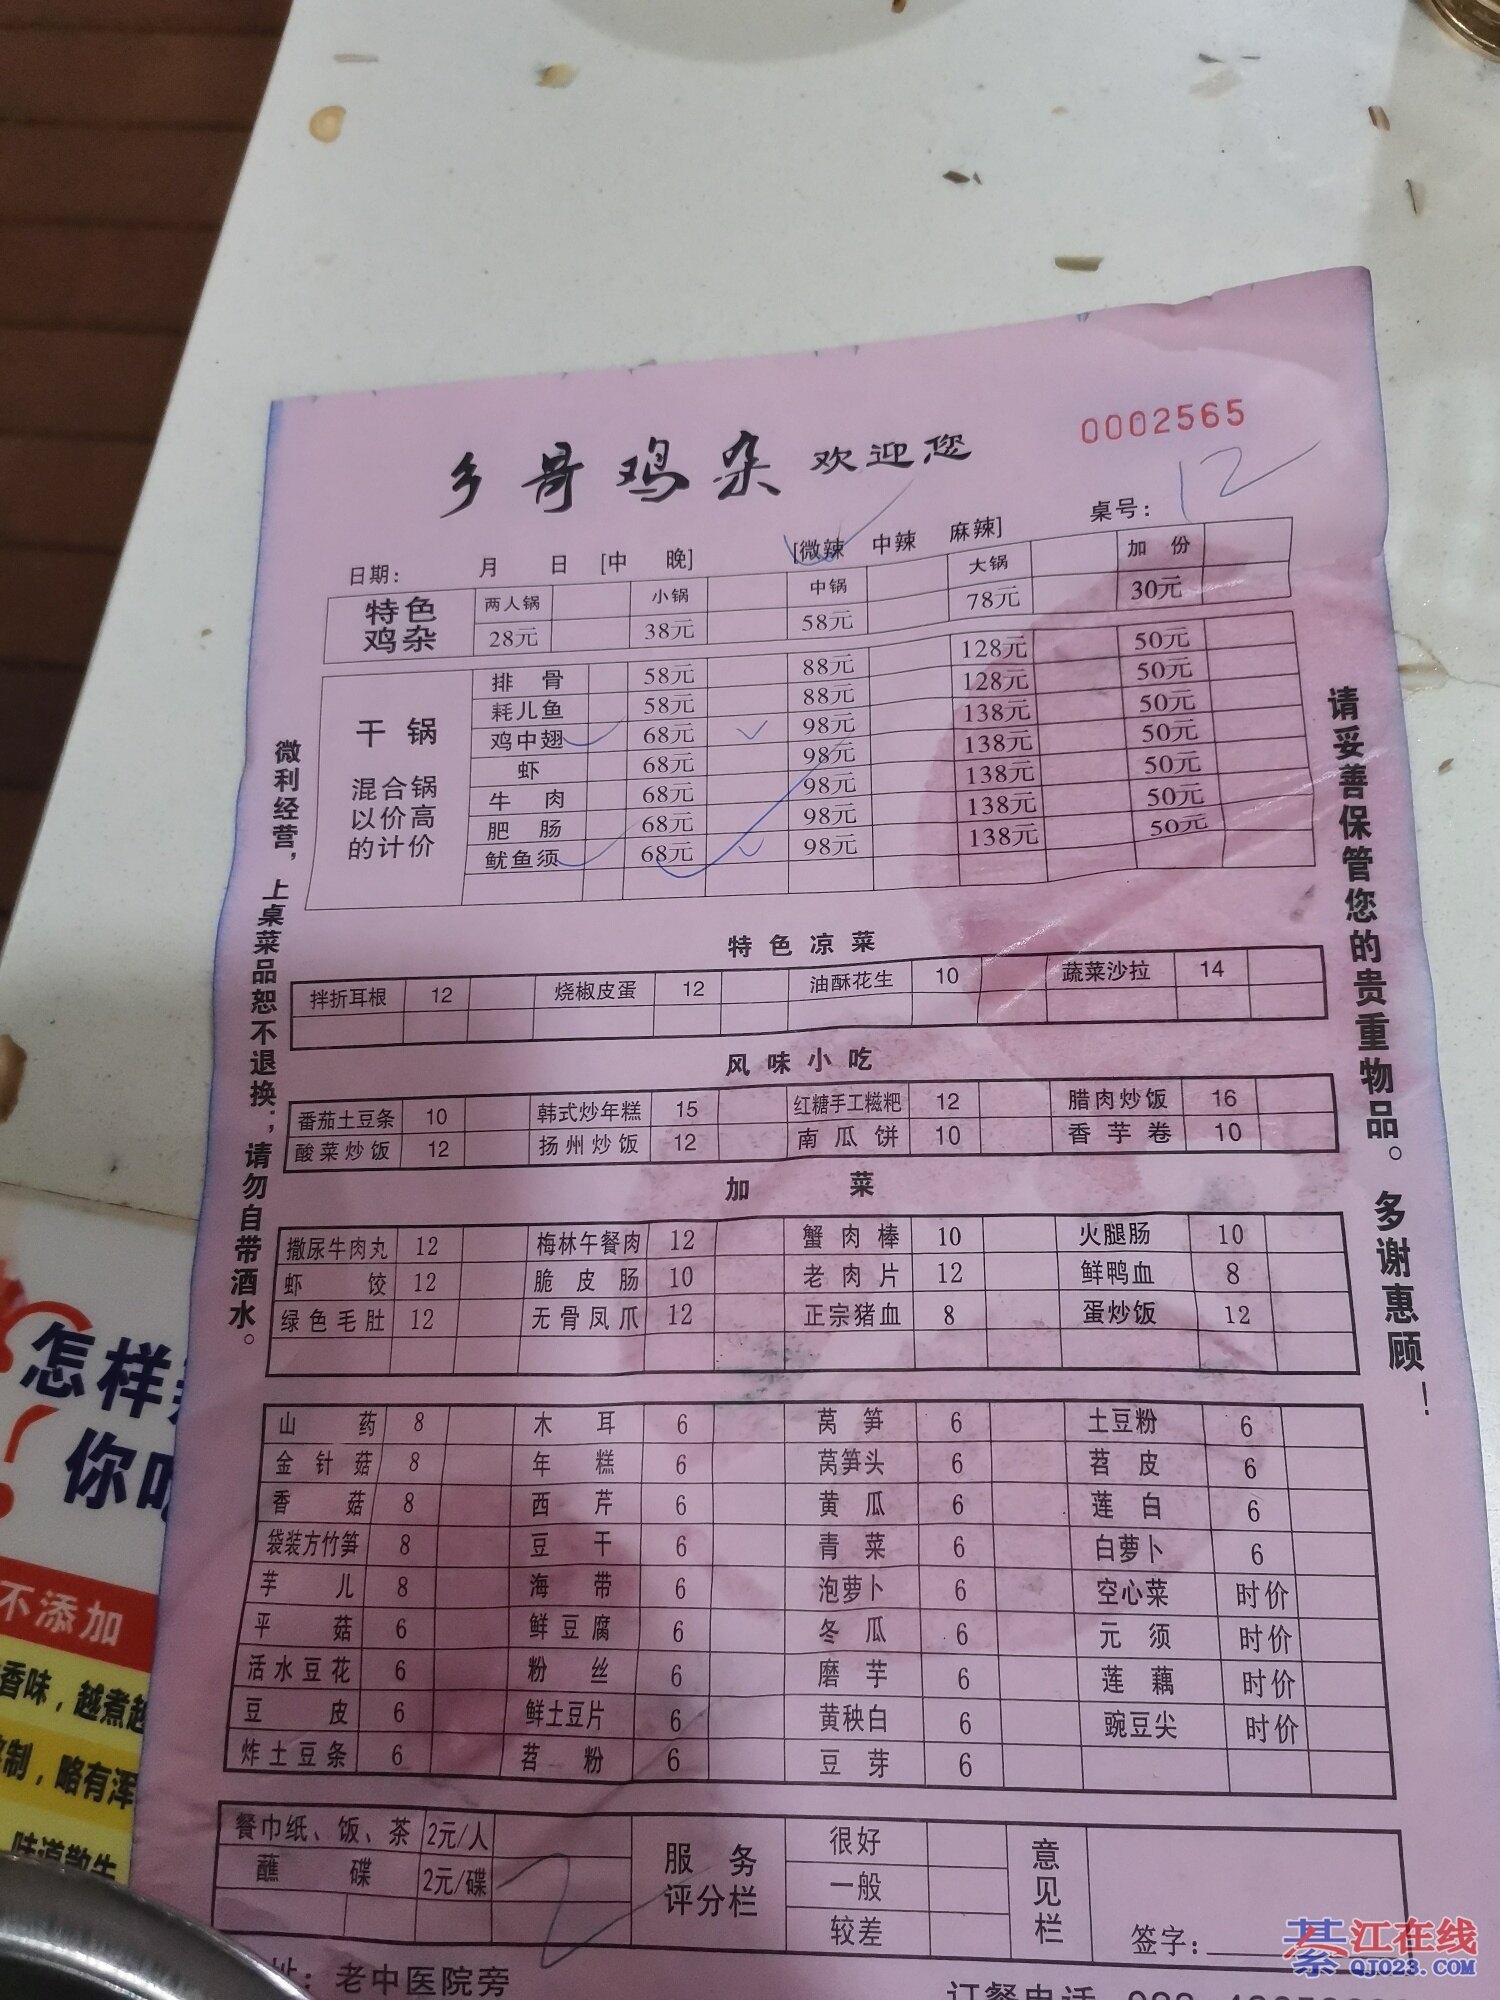 0002565
乡哥鸡杂 欢迎您
桌号: 12
日期: 月 日 [中 晚] [微辣 中辣 麻辣]
特色鸡杂 两人锅 小锅 中锅 大锅 加份
28元 38元 58元 78元 30元
干锅
混合锅
以价高
的计价
排骨 58元 88元 128元 50元
耗儿鱼 58元 88元 128元 50元
鸡中翅 68元 98元 138元 50元
虾 68元 98元 138元 50元
牛肉 68元 98元 138元 50元
肥肠 68元 98元 138元 50元
鱿鱼须 68元 98元 138元 50元
特色凉菜
拌折耳根 12 烧椒皮蛋 12 油酥花生 10 蔬菜沙拉 14
风味小吃
番茄土豆条 10 韩式炒年糕 15 红糖手工糍粑 12 腊肉炒饭 16
酸菜炒饭 12 扬州炒饭 12 南瓜饼 10 香芋卷 10
加菜
撒尿牛肉丸 12 梅林午餐肉 12 蟹肉棒 10 火腿肠 10
虾饺 12 脆皮肠 10 老肉片 12 鲜鸭血 8
绿色毛肚 12 无骨凤爪 12 正宗猪血 8 蛋炒饭 12
山药 8 木耳 6 莴笋 6 土豆粉 6
金针菇 8 年糕 6 莴笋头 6 苕皮 6
香菇 8 西芹 6 黄瓜 6 莲白 6
袋装方竹笋 8 豆干 6 青菜 6 白萝卜 6
芋儿 8 海带 6 泡萝卜 6 空心菜 时价
平菇 6 鲜豆腐 6 冬瓜 6 元须 时价
活水豆花 6 粉丝 6 磨芋 6 莲藕 时价
豆皮 6 鲜土豆片 6 黄秧白 6 豌豆尖 时价
炸土豆条 6 苕粉 6 豆芽 6
餐巾纸、饭、茶 2元/人
蘸碟 2元/碟 2
服务评分栏 很好 一般 较差
意见栏 签字:
址: 老中医院旁
订餐电话
微利经营，上桌菜品恕不退换；请勿自带酒水。
请妥善保管您的贵重物品。多谢惠顾！
怎样
你
不添加
香味，越煮越
制，略有浑
綦江在线
QJ023.COM